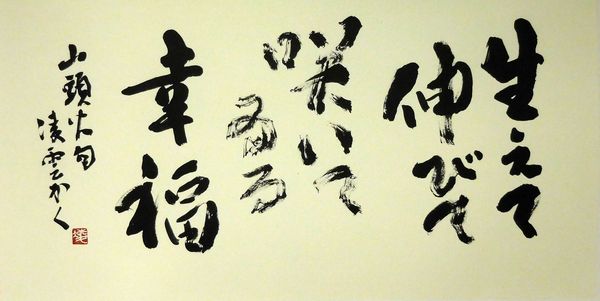 生えて
伸びて
咲いて
ゐる
幸福
山頭火句
凌雲かく